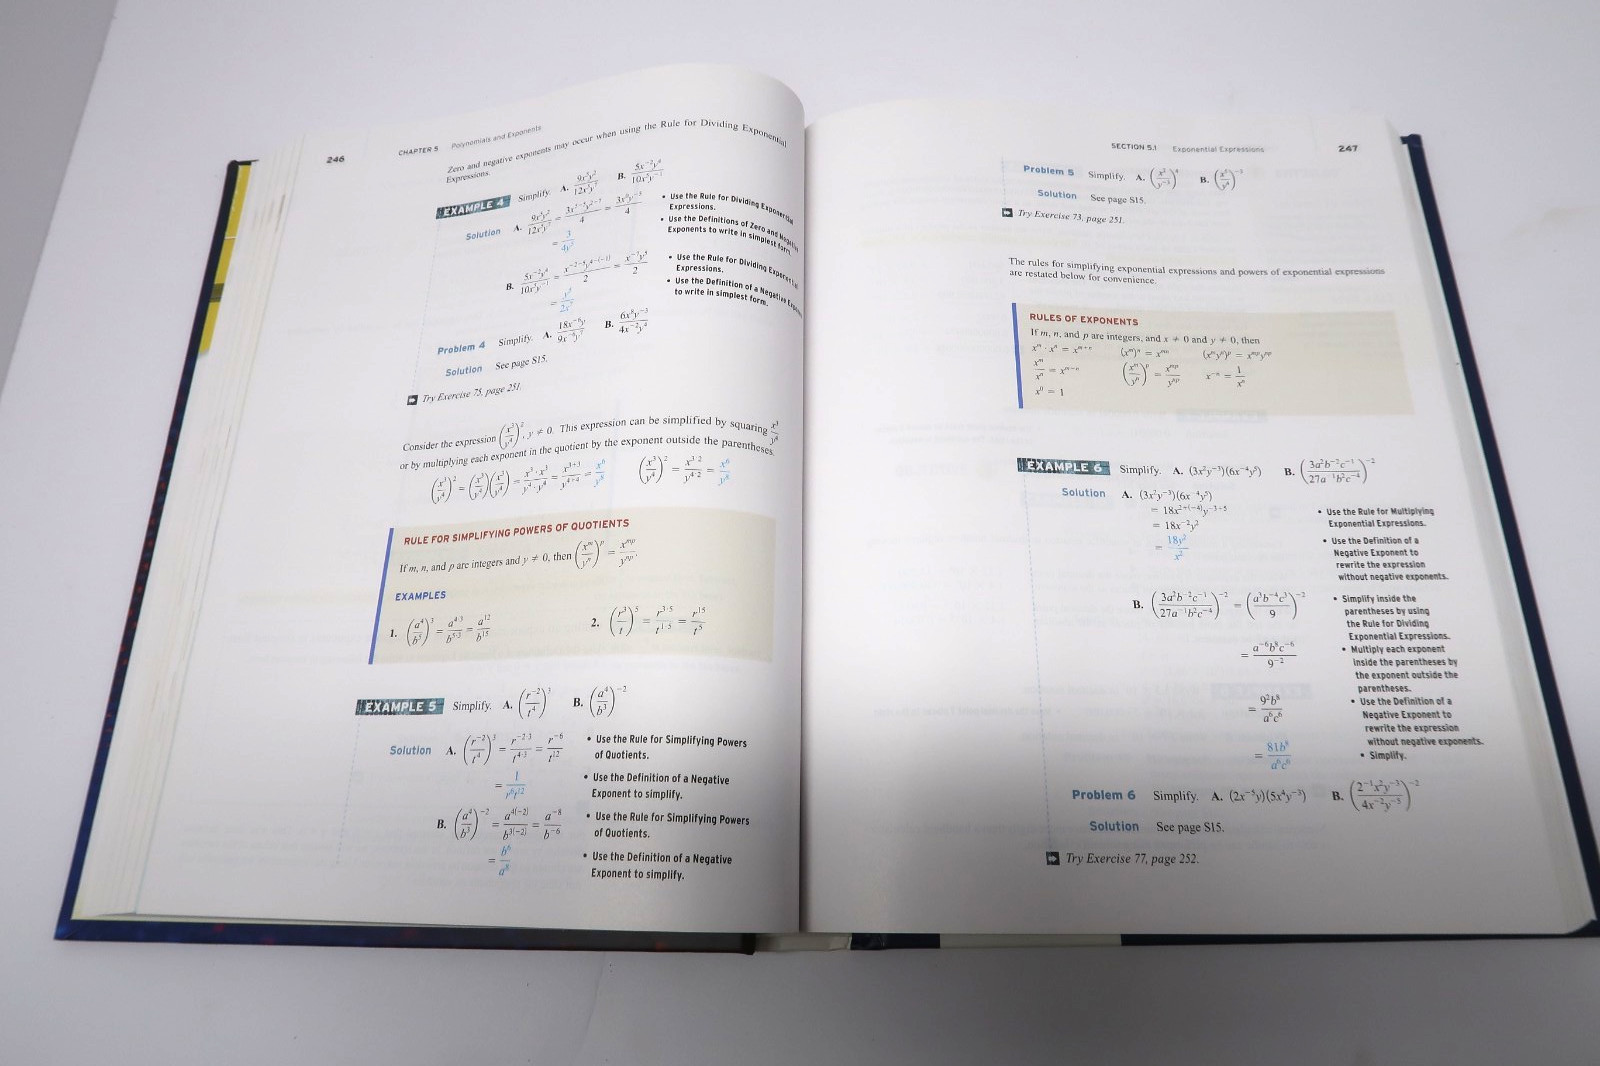 246
CHAPTER 5 Polynomials and Exponents
Zero and negative exponents may occur when using the Rule for Dividing Exponential
Expressions.
EXAMPLE 4 Simplify. A. B.
Solution A.
• Use the Rule for Dividing Exponential
Expressions.
• Use the Definitions of Zero and Negative
Exponents to write in simplest form.
B.
• Use the Rule for Dividing Exponential
Expressions.
• Use the Definition of a Negative
to write in simplest form.
Problem 4 Simplify. A. B.
Solution See page S15.
Try Exercise 75, page 251.
Consider the expression (x³/y⁴)², y ≠ 0. This expression can be simplified by squaring x³/y⁴
or by multiplying each exponent in the quotient by the exponent outside the parentheses.
(x³/y⁴)² = (x³/y⁴)(x³/y⁴) = x³·x³/y⁴·y⁴ = x³⁺³/y⁴⁺⁴ = x⁶/y⁸ (x³/y⁴)² = x³·²/y⁴·² = x⁶/y⁸
RULE FOR SIMPLIFYING POWERS OF QUOTIENTS
If m, n, and p are integers and y ≠ 0, then (xᵐ/yⁿ)ᵖ = xᵐᵖ/yⁿᵖ.
EXAMPLES
1. (a⁴/b⁵)³ = a⁴·³/b⁵·³ = a¹²/b¹⁵ 2. (r³/t)⁵ = r³·⁵/t¹·⁵ = r¹⁵/t⁵
EXAMPLE 5 Simplify. A. (r⁻²/t⁴)³ B. (a⁴/b³)⁻²
Solution A. (r⁻²/t⁴)³ = r⁻²·³/t⁴·³ = r⁻⁶/t¹²
• Use the Rule for Simplifying Powers
of Quotients.
= 1/r⁶t¹²
• Use the Definition of a Negative
Exponent to simplify.
B. (a⁴/b³)⁻² = a⁴⁽⁻²⁾/b³⁽⁻²⁾ = a⁻⁸/b⁻⁶
• Use the Rule for Simplifying Powers
of Quotients.
= b⁶/a⁸
• Use the Definition of a Negative
Exponent to simplify.
SECTION 5.1 Exponential Expressions 247
Problem 5 Simplify. A. B.
Solution See page S15.
Try Exercise 73, page 251.
The rules for simplifying exponential expressions and powers of exponential expressions
are restated below for convenience.
RULES OF EXPONENTS
If m, n, and p are integers, and x ≠ 0 and y ≠ 0, then
xᵐ · xⁿ = xᵐ⁺ⁿ (xᵐ)ⁿ = xᵐⁿ (xᵐyⁿ)ᵖ = xᵐᵖyⁿᵖ
xᵐ/xⁿ = xᵐ⁻ⁿ (xᵐ/yⁿ)ᵖ = xᵐᵖ/yⁿᵖ x⁻ⁿ = 1/xⁿ
x⁰ = 1
EXAMPLE 6 Simplify. A. (3x²y⁻³)(6x⁻⁴y⁵) B. (3a²b⁻²c⁻¹/27a⁻¹b²c⁻⁴)⁻²
Solution A. (3x²y⁻³)(6x⁻⁴y⁵)
= 18x²⁺⁽⁻⁴⁾y⁻³⁺⁵
• Use the Rule for Multiplying
Exponential Expressions.
= 18x⁻²y²
= 18y²/x²
• Use the Definition of a
Negative Exponent to
rewrite the expression
without negative exponents.
B. (3a²b⁻²c⁻¹/27a⁻¹b²c⁻⁴)⁻² = (a³b⁻⁴c³/9)⁻²
• Simplify inside the
parentheses by using
the Rule for Dividing
Exponential Expressions.
= a⁻⁶b⁸c⁻⁶/9⁻²
• Multiply each exponent
inside the parentheses by
the exponent outside the
parentheses.
= 9²b⁸/a⁶c⁶
• Use the Definition of a
Negative Exponent to
rewrite the expression
without negative exponents.
= 81b⁸/a⁶c⁶
• Simplify.
Problem 6 Simplify. A. (2x⁻⁵y)(5x⁴y⁻³) B. (2⁻¹x²y⁻³/4x⁻²y⁻⁵)⁻²
Solution See page S15.
Try Exercise 77, page 252.